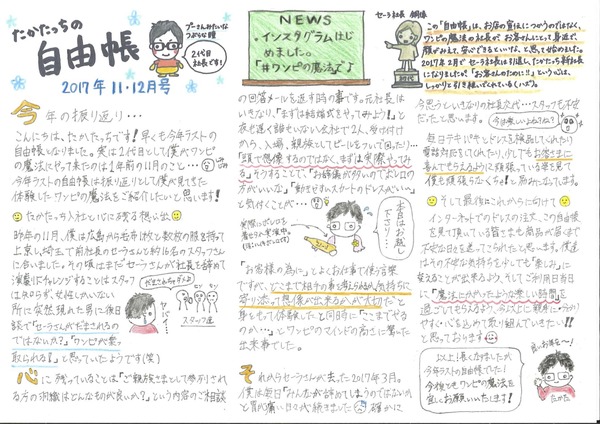 たかたっちの
自由帳
2017年 11・12月号
プーさんみたいな
つぶらな瞳
2代目
社長です!
今年の振り返り…
こんにちは。たかたっちです!早くも今年ラストの
自由帳となりました。実は2代目として僕がワンピ
の魔法にやって来たのは1年前の11月のこと…
今年ラストの自由帳は振り返りとして僕が見てきた
体験したワンピの魔法をご紹介したいと思います!
たかたっち入社と心に残る想い出
昨年の11月、僕は広島から
上京し、埼玉で前社長のセーラさんと約16名のスタッフさん
に合いました。その頃はまだセーラさんが社長を辞めて
演劇にチャレンジすることはスタッフ
は知らず、女性しかいない
所に突然現れた男に後日
談で「セーラさんがだまされるの
ではないか?」「ワンピが乗っ
取られる?」と思っていたようです(笑)
だまされちゃダメよ
ヤバイ…
スタッフ達
心に残っていることは「ご親族さまとして参列され
る方の羽織はどんなものが良いか?」という内容のご相談
NEWS
・インスタグラムはじ
めました。
「#ワンピの魔法で♪
の回答メールを返す時の事です。元社長は
いきなり、「まずは結婚式をやってみよう!」と
夜も遅く誰もいない会社で2人、受け付け
から、入場、親族としてビールをついで回ったり…
「頭で想像するのではなく、まずは実際やってみ
る。」そうすることで、「お辞儀が多いのでボレロの
方がいいな。」「動きやすいスカートのドレスがいい〜」
と気付くことが…
実際にボレロを
着せられ実演中。
本日はお越し
下さり…
「お客様の為に」とよくお仕事で使う言葉
ですが、どこまで相手の事を考えられるか、気持ちに
寄り添って想像が出来るかが大切だと
身をもって体験したと同時に「ここまでやる
のか…」とワンピのマインドの高さに驚いた
出来事でした。
それからセーラさんが去った2017年3月。
僕は毎日「みんなが辞めてしまうのではないか」
と胃が痛い日々が続きました 確かに
セーラ社長 銅像
時代
この「自由帳」は、お店の宣伝につかうのではなく、
ワンピの魔法の社長がお客さんにとって身近で、
顔がみえて、安心できるといいな、と思ってはじめました。
2017年2月でセーラ社長は引退し「たかたっち新社長」
になりましたが、「お客さんのために!!」という心は、
しっかりと引き継いでくれていくハズ〜っ。
今思うといきなりの社長交代…スタッフも不安
だったと思います。
今は楽しいよね??
毎日テキパキとドレスを検品してくれたり
電話対応をしてくれたり、少しでもお客さまに
喜んでもらえるようにと頑張っている姿を見て
僕も頑張らなくちゃ!と励みになってます。
そして最後にこれからに向けて
インターネットでのドレスの注文、この自由帳
を見て頂いている皆さまも商品が届くまで
不安な日々を送ってこられたと思います。僕達
はその不安な気持ちを少しでも「楽しみ」に
変えることが出来るよう、そしてご利用日当日
に「魔法にかかったような楽しい時間」を
過ごしてもらえるよう、今以上に親身に・わかり
やすく・心を込めて取り組んでいきたい!!
と思っております!
以上!長くなりましたが
今年ラストの自由帳でした!
今後ともワンピの魔法を
宜しくお願いいたします!
たかた